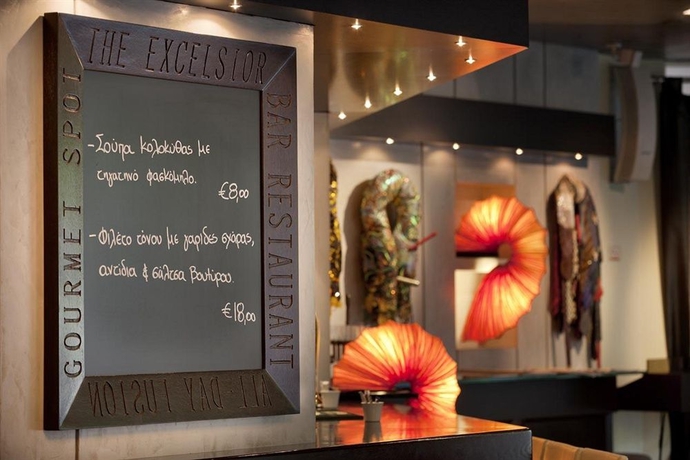 THE EXCELSIOR
BAR RESTAURANT
ALL-DAY FUSION
GOURMET SPOT
-Σούπα κολοκύθας με
τηγατινό φασκόμηλο.
€8,00
-Φιλέτο τόνου με γαρίδες σχάρας,
αντίδια & σάλτσα βουτύρου.
€18,00